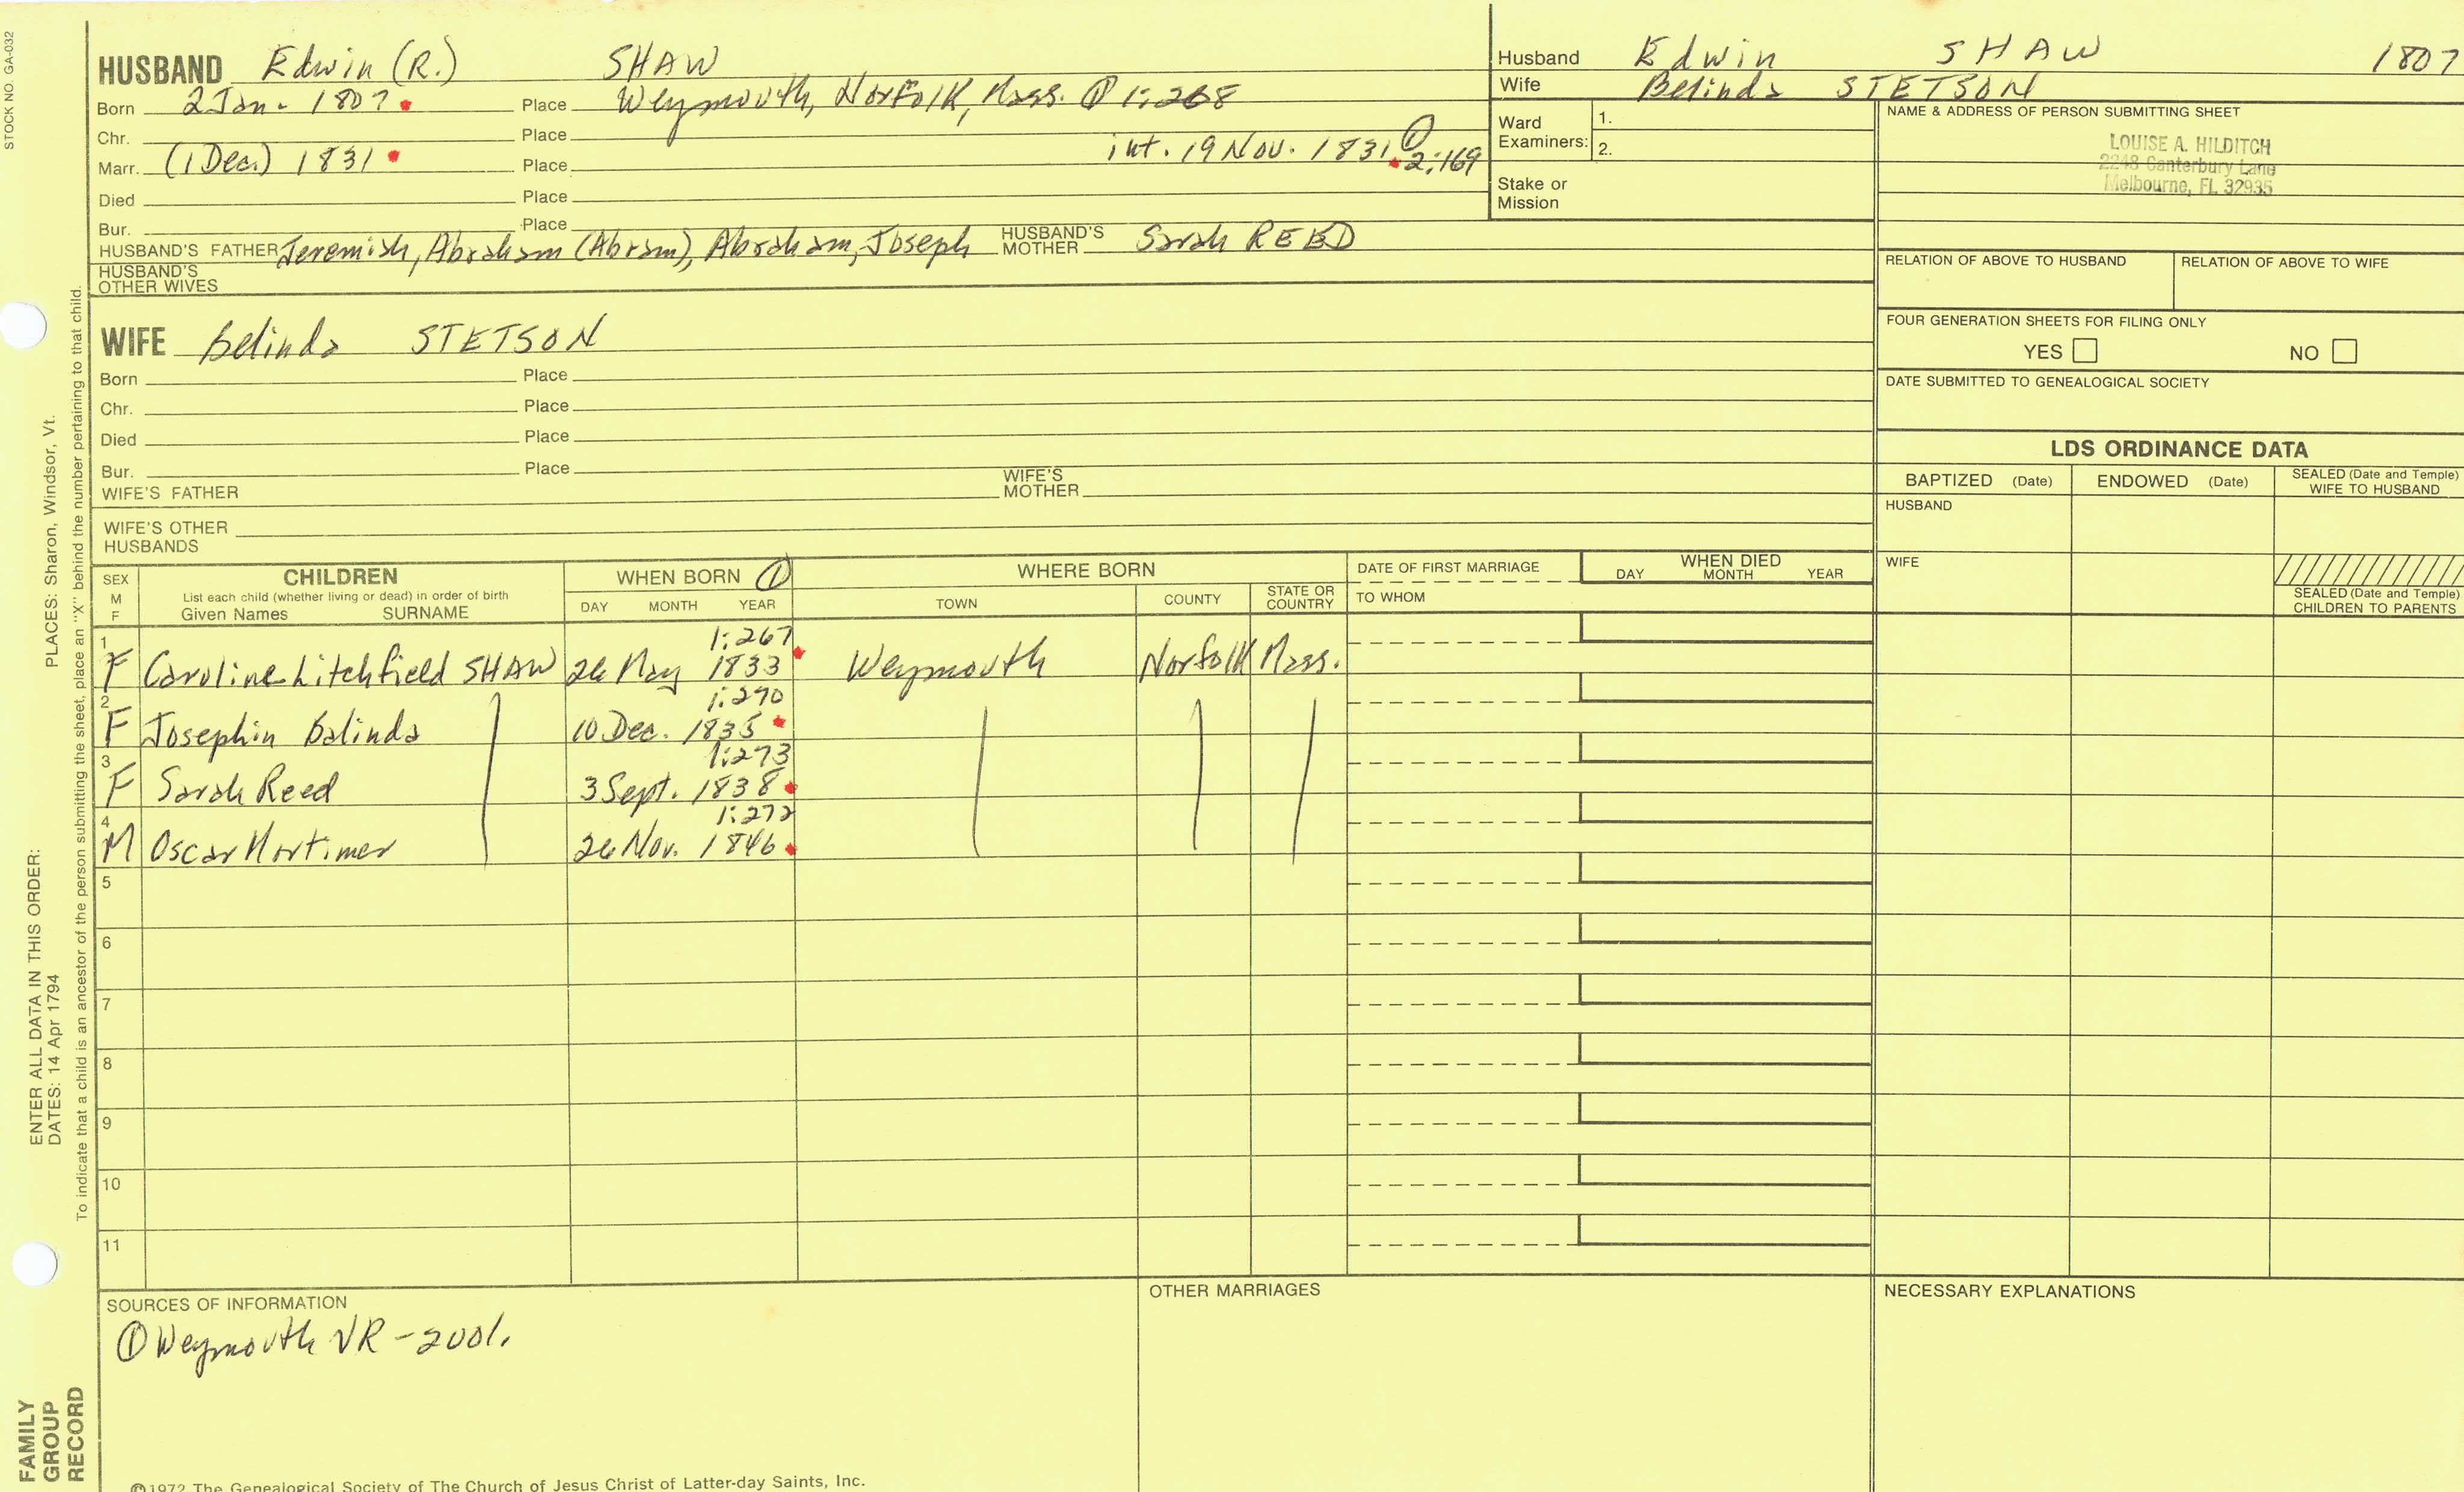 STOCK NO. GA-032
HUSBAND Edwin (R.) SHAW
Born 2 Jan. 1807 Place Weymouth, Norfolk, Mass. ① 1:268
Chr. Place
int. 19 Nov. 1831 ① 2:169
Marr. (1 Dec.) 1831 Place
Died Place
Bur. Place
HUSBAND'S FATHER Jeremiah, Abraham (Abram), Abraham, Joseph HUSBAND'S MOTHER Sarah REED
HUSBAND'S OTHER WIVES
Husband Edwin SHAW 1807
Wife Belinda STETSON
Ward Examiners: 1.
2.
Stake or Mission
NAME & ADDRESS OF PERSON SUBMITTING SHEET
LOUISE A. HILDITCH
2248 Canterbury Lane
Melbourne, FL 32935
RELATION OF ABOVE TO HUSBAND RELATION OF ABOVE TO WIFE
FOUR GENERATION SHEETS FOR FILING ONLY
YES NO
DATE SUBMITTED TO GENEALOGICAL SOCIETY
WIFE Belinda STETSON
Born Place
Chr. Place
Died Place
Bur. Place
WIFE'S FATHER WIFE'S MOTHER
WIFE'S OTHER HUSBANDS
LDS ORDINANCE DATA
BAPTIZED (Date) ENDOWED (Date) SEALED (Date and Temple) WIFE TO HUSBAND
HUSBAND
WIFE
SEALED (Date and Temple) CHILDREN TO PARENTS
SEX M F
CHILDREN
List each child (whether living or dead) in order of birth
Given Names SURNAME
WHEN BORN ①
DAY MONTH YEAR
WHERE BORN
TOWN COUNTY STATE OR COUNTRY
DATE OF FIRST MARRIAGE
TO WHOM
WHEN DIED
DAY MONTH YEAR
1 1:267
F Caroline Litchfield SHAW 26 May 1833 Weymouth Norfolk Mass.
2 1:270
F Josephin Balinda 10 Dec. 1835
3 1:273
F Sarah Reed 3 Sept. 1838
4 1:272
M Oscar Mortimer 26 Nov. 1846
5
6
7
8
9
10
11
SOURCES OF INFORMATION
① Weymouth VR - 2001.
OTHER MARRIAGES
NECESSARY EXPLANATIONS
©1972 The Genealogical Society of The Church of Jesus Christ of Latter-day Saints, Inc.
FAMILY GROUP RECORD
ENTER ALL DATA IN THIS ORDER:
DATES: 14 Apr 1794
PLACES: Sharon, Windsor, Vt.
To indicate that a child is an ancestor of the person submitting the sheet, place an "X" behind the number pertaining to that child.